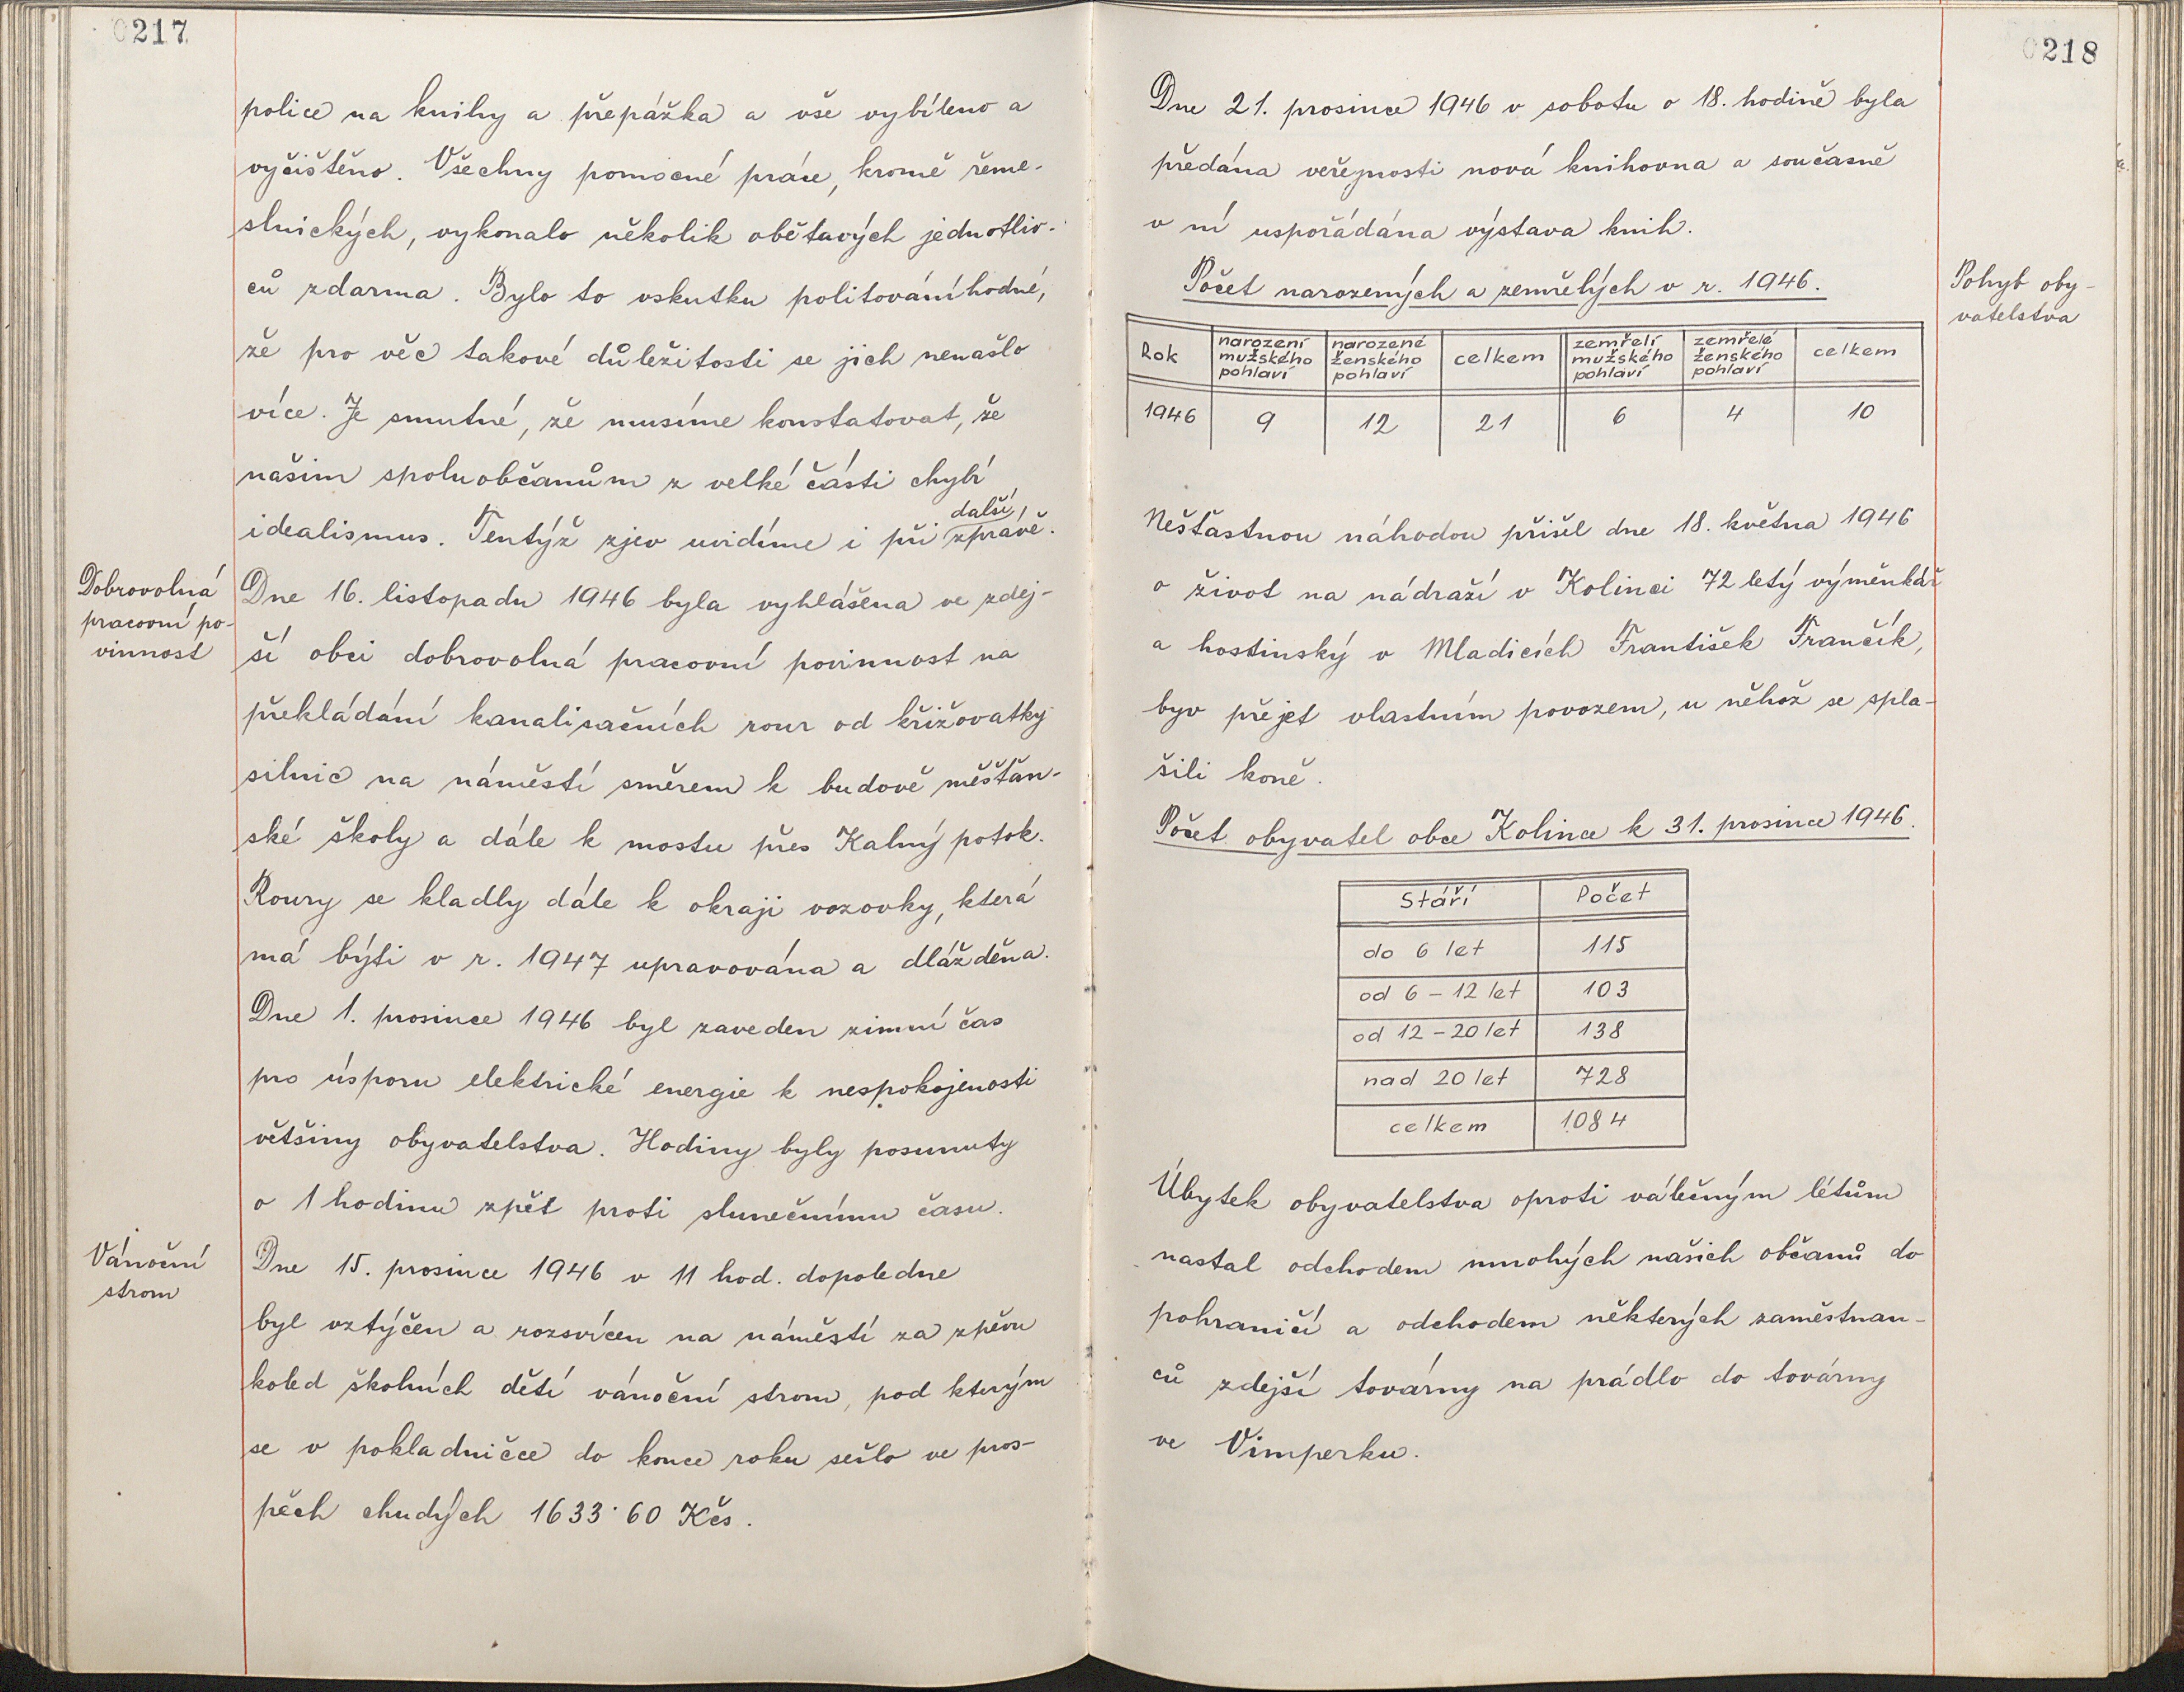 0217
police na knihy a přepážka a vše vybíleno a
vyčištěno. Všechny pomocné práce, kromě řeme-
slnických, vykonalo několik obětavých jednotliv-
ců zdarma. Bylo to vskutku politováníhodné,
že pro věc takové důležitosti se jich nenašlo
více. Je smutné, že musíme konstatovat, že
našim spoluobčanům z velké části chybí
idealismus. Tentýž zjev uvidíme i při další zprávě.
Dobrovolná
pracovní po-
vinnost
Dne 16. listopadu 1946 byla vyhlášena ve zdej-
ší obci dobrovolná pracovní povinnost na
překládání kanalisačních rour od křižovatky
silnic na náměstí směrem k budově měšťan-
ské školy a dále k mostu přes Kalný potok.
Roury se kladly dále k okraji vozovky, která
má býti v r. 1947 upravována a dlážděna.
Dne 1. prosince 1946 byl zaveden zimní čas
pro úsporu elektrické energie k nespokojenosti
většiny obyvatelstva. Hodiny byly posunuty
o 1 hodinu zpět proti slunečnímu času.
Vánoční
strom
Dne 15. prosince 1946 v 11 hod. dopoledne
byl vztýčen a rozsvícen na náměstí za zpěvu
koled školních dětí vánoční strom, pod kterým
se v pokladničce do konce roku sešlo ve pros-
pěch chudých 1633·60 Kčs.
0218
Dne 21. prosince 1946 v sobotu o 18. hodině byla
předána veřejnosti nová knihovna a současně
v ní uspořádána výstava knih.
Pohyb oby-
vatelstva
Počet narozených a zemřelých v r. 1946.
Rok narození mužského pohlaví narozené ženského pohlaví celkem zemřelí mužského pohlaví zemřelé ženského pohlaví celkem
1946 9 12 21 6 4 10
Nešťastnou náhodou přišel dne 18. května 1946
o život na nádraží v Kolinci 72 letý výměnkář
a hostinský v Mladicích František Frančík,
byv přejet vlastním povozem, u něhož se spla-
šili koně.
Počet obyvatel obce Kolince k 31. prosince 1946.
Stáří Počet
do 6 let 115
od 6 – 12 let 103
od 12 – 20 let 138
nad 20 let 728
celkem 1084
Úbytek obyvatelstva oproti válečným létům
nastal odchodem mnohých našich občanů do
pohraničí a odchodem některých zaměstnan-
ců zdejší továrny na prádlo do továrny
ve Vimperku.